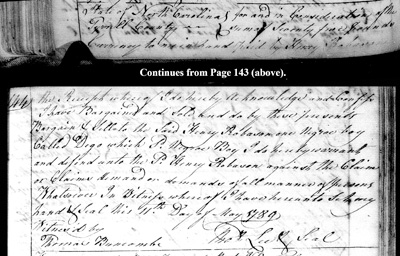 State of North Carolina for and in Consideration of the
County Sum of Seventy five Pounds
Currency to me in hand Paid by Henry
Continues from Page 143 (above).
144
the Receipt whereof I do hereby acknowledge and Confess
I have Bargained and Sold and do by these presents
Bargain & Sell to the Said Henry Rabason one Negroe boy
Called Digo which Sd Negroe Boy I do hereby warrant
and defend unto the Sd Henry Rabason against the Claim
or Claims demand or demands of all manner of Persons
Whatsoever In Witness whereof I have hereunto Set my
hand & Seal this 11th Day of May 1789
Witnessed by
Thomas Buncombe Thos Seal